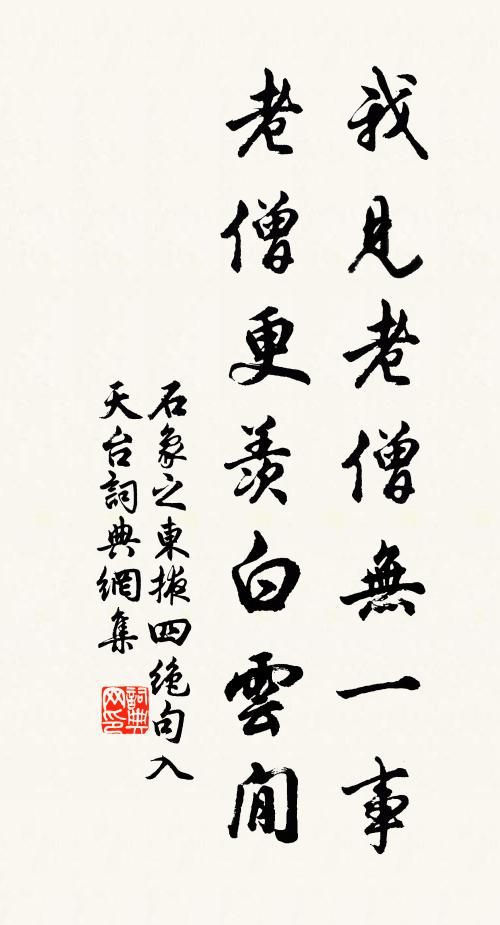 我見老僧無一事
老僧更羨白雲閒
石象之東掖四絶句入
天台詞典網集
詞典
网印